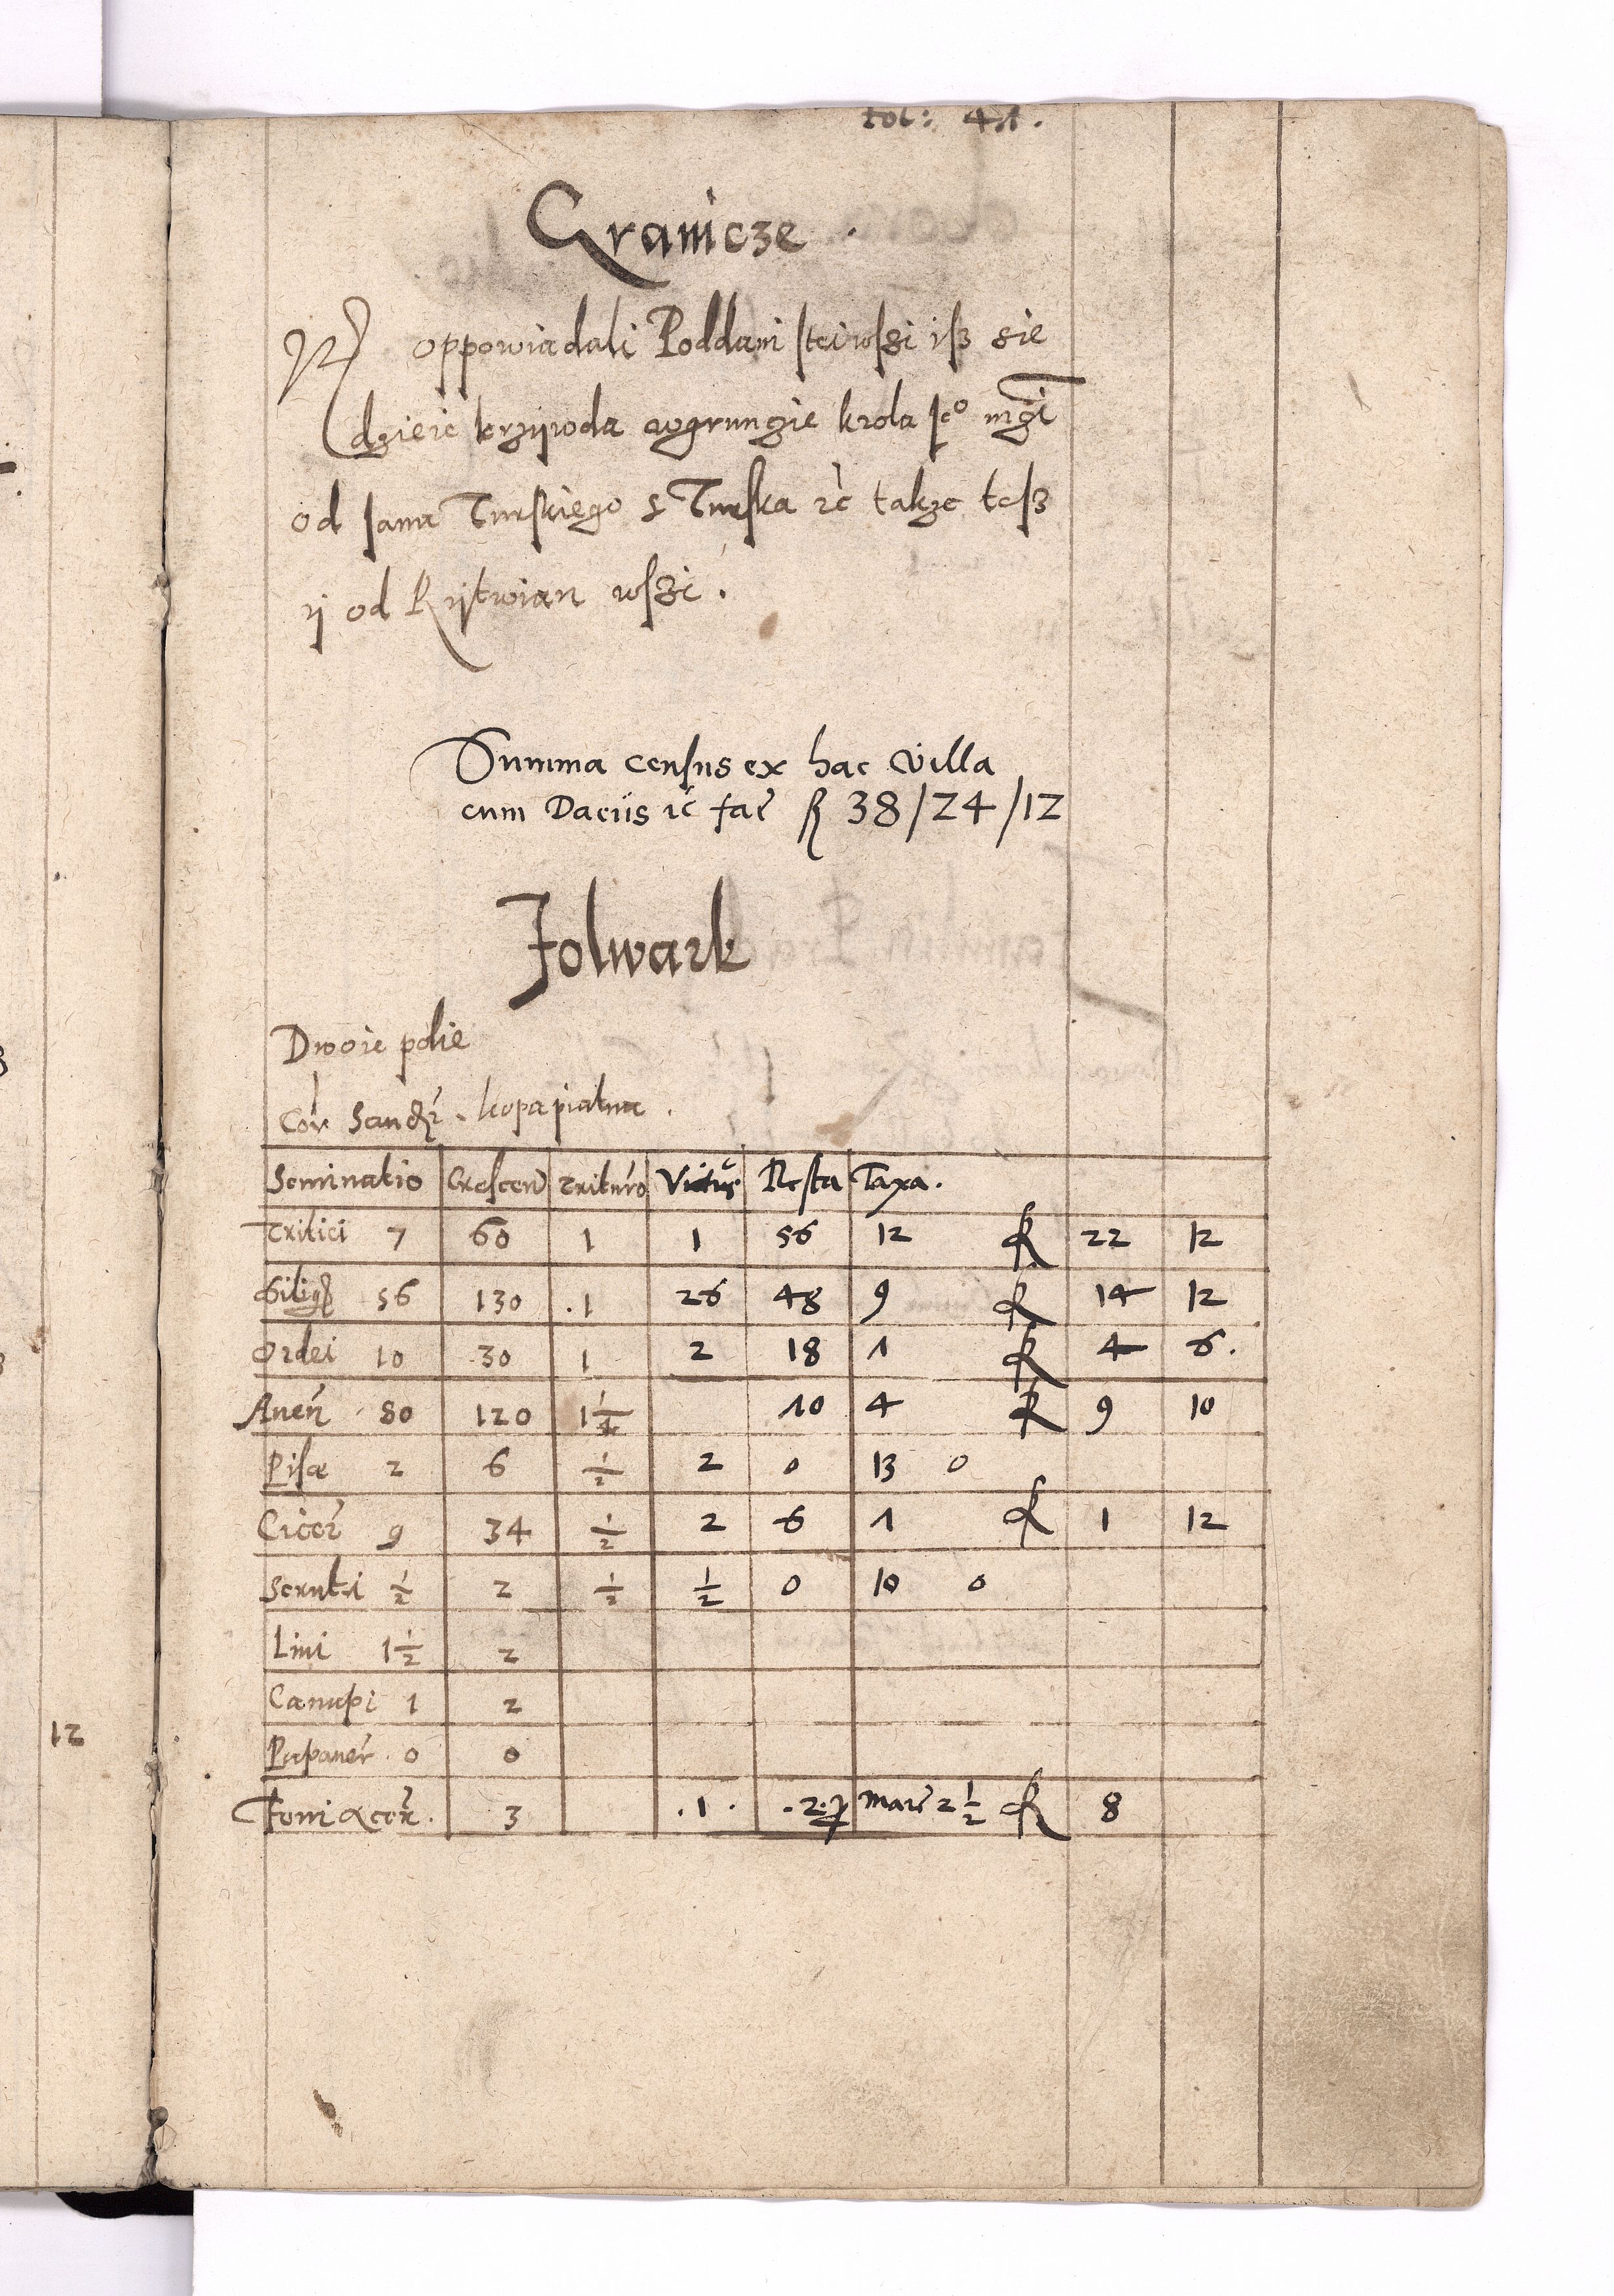 fol: 41.
Granicze .
oppowiadali Poddani stei wsszi isz sie
dzieie krzywda wgrunczie krola Je° mści
od Jana Turskiego s Turska ѐc takze tesz
y od Rytwian wsszi .
Summa census ex hac Villa
cum Daciis ѐc fac R 38/24/12
Folwark
Dwoie polie
Cor Sandr. kopa piatna .
Seminatio Crescen tritura Victus Resta Taxa .
Tritici 7 60 1 1 56 12 R 22 12
Silig 56 130 . 1 26 48 9 R 14 12
Ordei 10 30 1 2 18 1 R 4 6 .
Auen 80 120 1 1/4 10 4 R 9 10
Pisae 2 6 1/2 2 0 13 0
Cicer 9 34 1/2 2 6 1 R 1 12
1/2 2 1/2 1/2 0 10 0
Lini 1 1/2 2
Canapi 1 2
Papauer . 0 0
Foni acer . 3 . 1 . . 2 . Marc 2 1/2 R 8
12